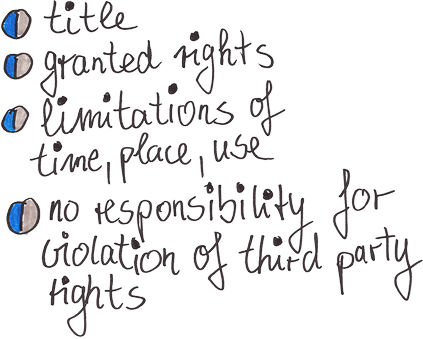 title
granted rights
limitations of
time, place, use
no responsibility for
violation of third party
rights